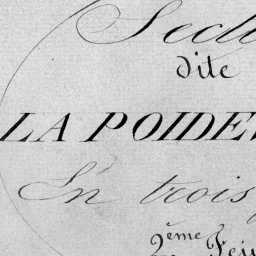 Secti
dite
LA POIDEV
En trois
2ème Feui